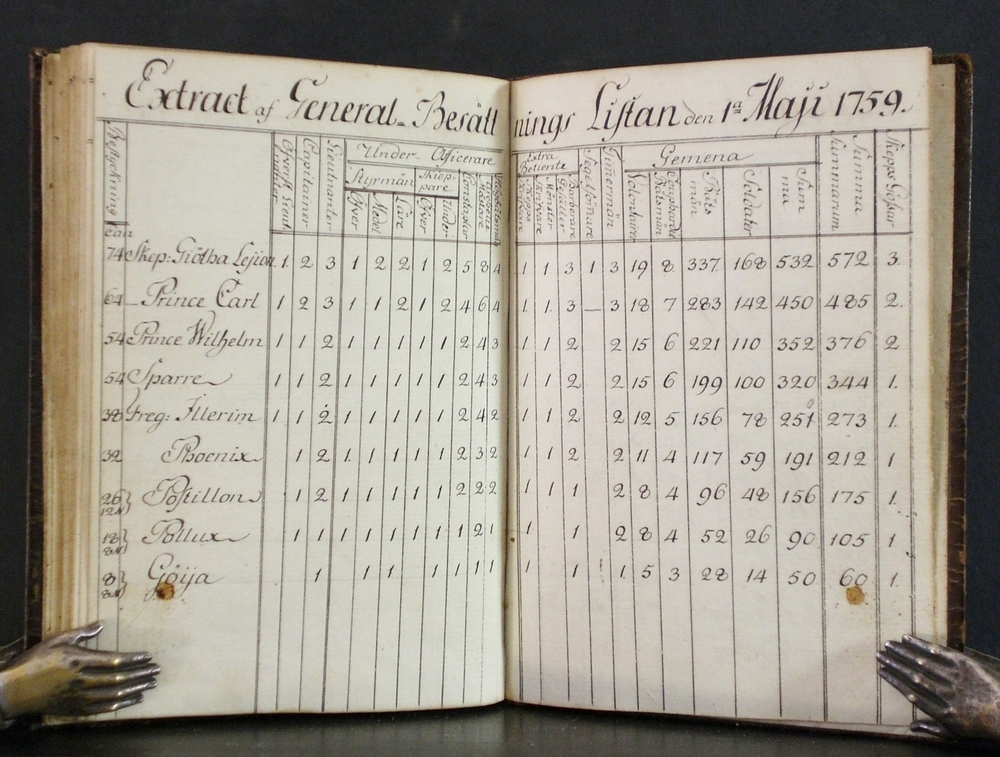 Extract af General-Besättnings Listan den 1a Maji 1759.
Bestyckning
Capitainer
Lieutnanter
Under-Officerare
Styrmän
Skieppare
Öfver
Medel
Läre
Öfver
Under
Extra Betiente
Timermän
Gemena
Volontairer
Båtsmän
Soldater
Summa
Summa
Summarum
Skepps Gåssar
Can
74 Skep: Giötha Lejion 1 2 3 1 2 2 1 2 5 8 4 1 1 3 1 3 19 8 337 168 532 572 3.
64 Prince Carl 1 2 3 1 1 2 1 2 4 6 4 1 1 3 — 3 18 7 283 142 450 485 2.
54 Prince Wilhelm 1 1 2 1 1 1 1 1 2 4 3 1 1 2 2 15 6 221 110 352 376 2
54 Sparre 1 1 2 1 1 1 1 1 2 4 3 1 1 2 2 15 6 199 100 320 344 1.
38 Freg: Illerim 1 1 2 1 1 1 1 1 2 4 2 1 1 2 2 12 5 156 78 251 273 1.
32 Phoenix 1 2 1 1 1 1 1 2 3 2 1 1 2 2 11 4 117 59 191 212 1
26 Postillon 1 2 1 1 1 1 1 2 2 2 1 1 1 2 8 4 96 48 156 175 1.
18 Pollux 1 1 1 1 1 1 1 1 2 1 1 1 2 8 4 52 26 90 105 1.
8 Göija 1 1 1 1 1 1 1 1 1 1 5 3 28 14 50 60 1.